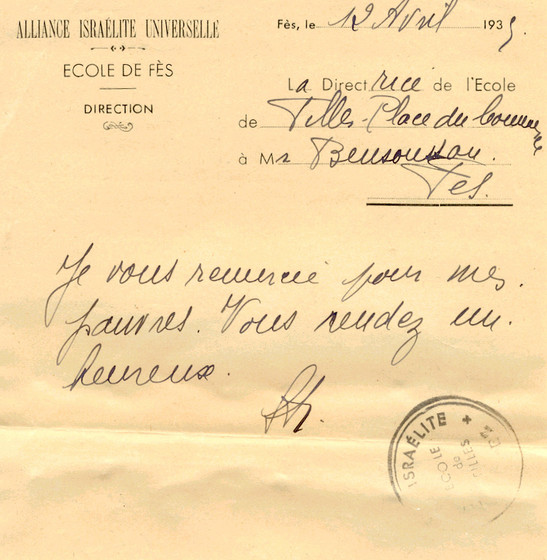 ALLIANCE ISRAÉLITE UNIVERSELLE
ECOLE DE FÈS
DIRECTION
Fès, le 12 Avril 1935.
La Directrice de l'Ecole
de Filles Place du Commerce
à Mr Bensoussan.
Fes.
Je vous remercie pour mes
pauvres. Vous rendez un
heureux.
ISRAÉLITE +
ECOLE
de
FILLES